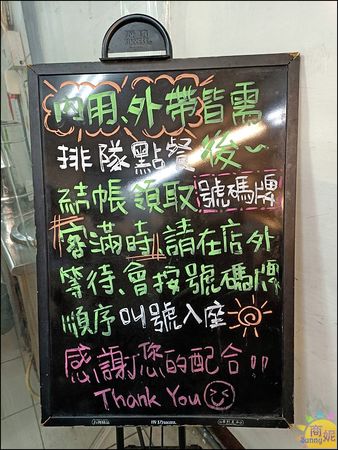 內用、外帶皆需
排隊點餐後~
結帳領取號碼牌
客滿時請在店外
等待、會按號碼牌
順序叫號入座
感謝您的配合!!
Thank You
商妮
Sunny